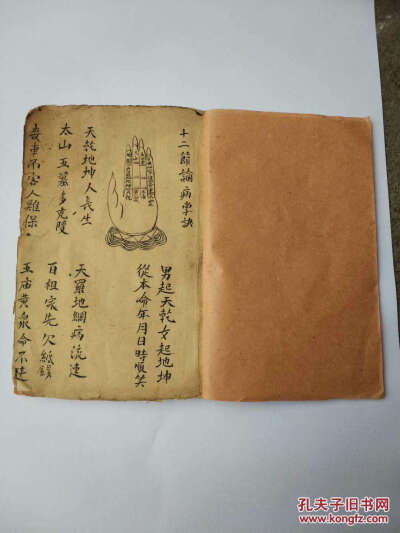 十二節論病掌訣
男起天乾女起地坤
從本命年月日時順笑
天乾地坤人長生
天羅地網病流連
太山五墓多克隆
百祖家先欠紙錢
喪車吊客人難保
五庙黄泉命不延
孔夫子旧书网
www.kongfz.com